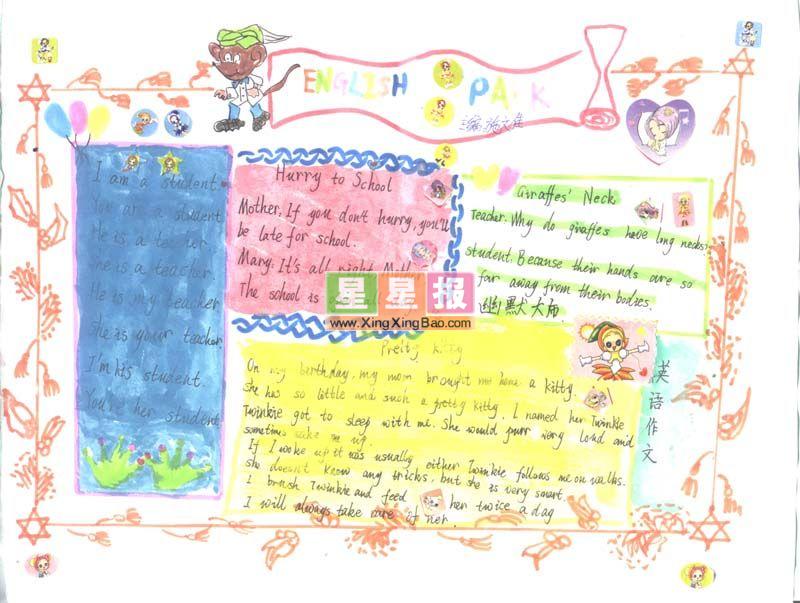 ENGLISH PARK
I am a student.
You are a student
He is a teacher.
she is a teacher.
He is my teacher
she is your teacher
I'm his student.
You're her student
Hurry to School
Mother. If you don't hurry, you'll
be late for school.
Mary. It's all right
The school is
Giraffes' Neck
Teacher. Why do giraffes have long necks?
student. Because their hands are so
far away from their bodies.
幽默大师
星星报
www.XingXingBao.com
Pretty Kitty
On my birthday, my mom brought me home a kitty.
she has so little and such a pretty kitty. I named her Twinkie
Twinkie got to sleep with me. She would purr very loud and
sometimes wake me up.
If I woke up it was usually either Twinkie follows me on walks.
she doesn't know any tricks, but she is very smart.
I brush Twinkie and feed her twice a day
I will always take care of her.
英语作文